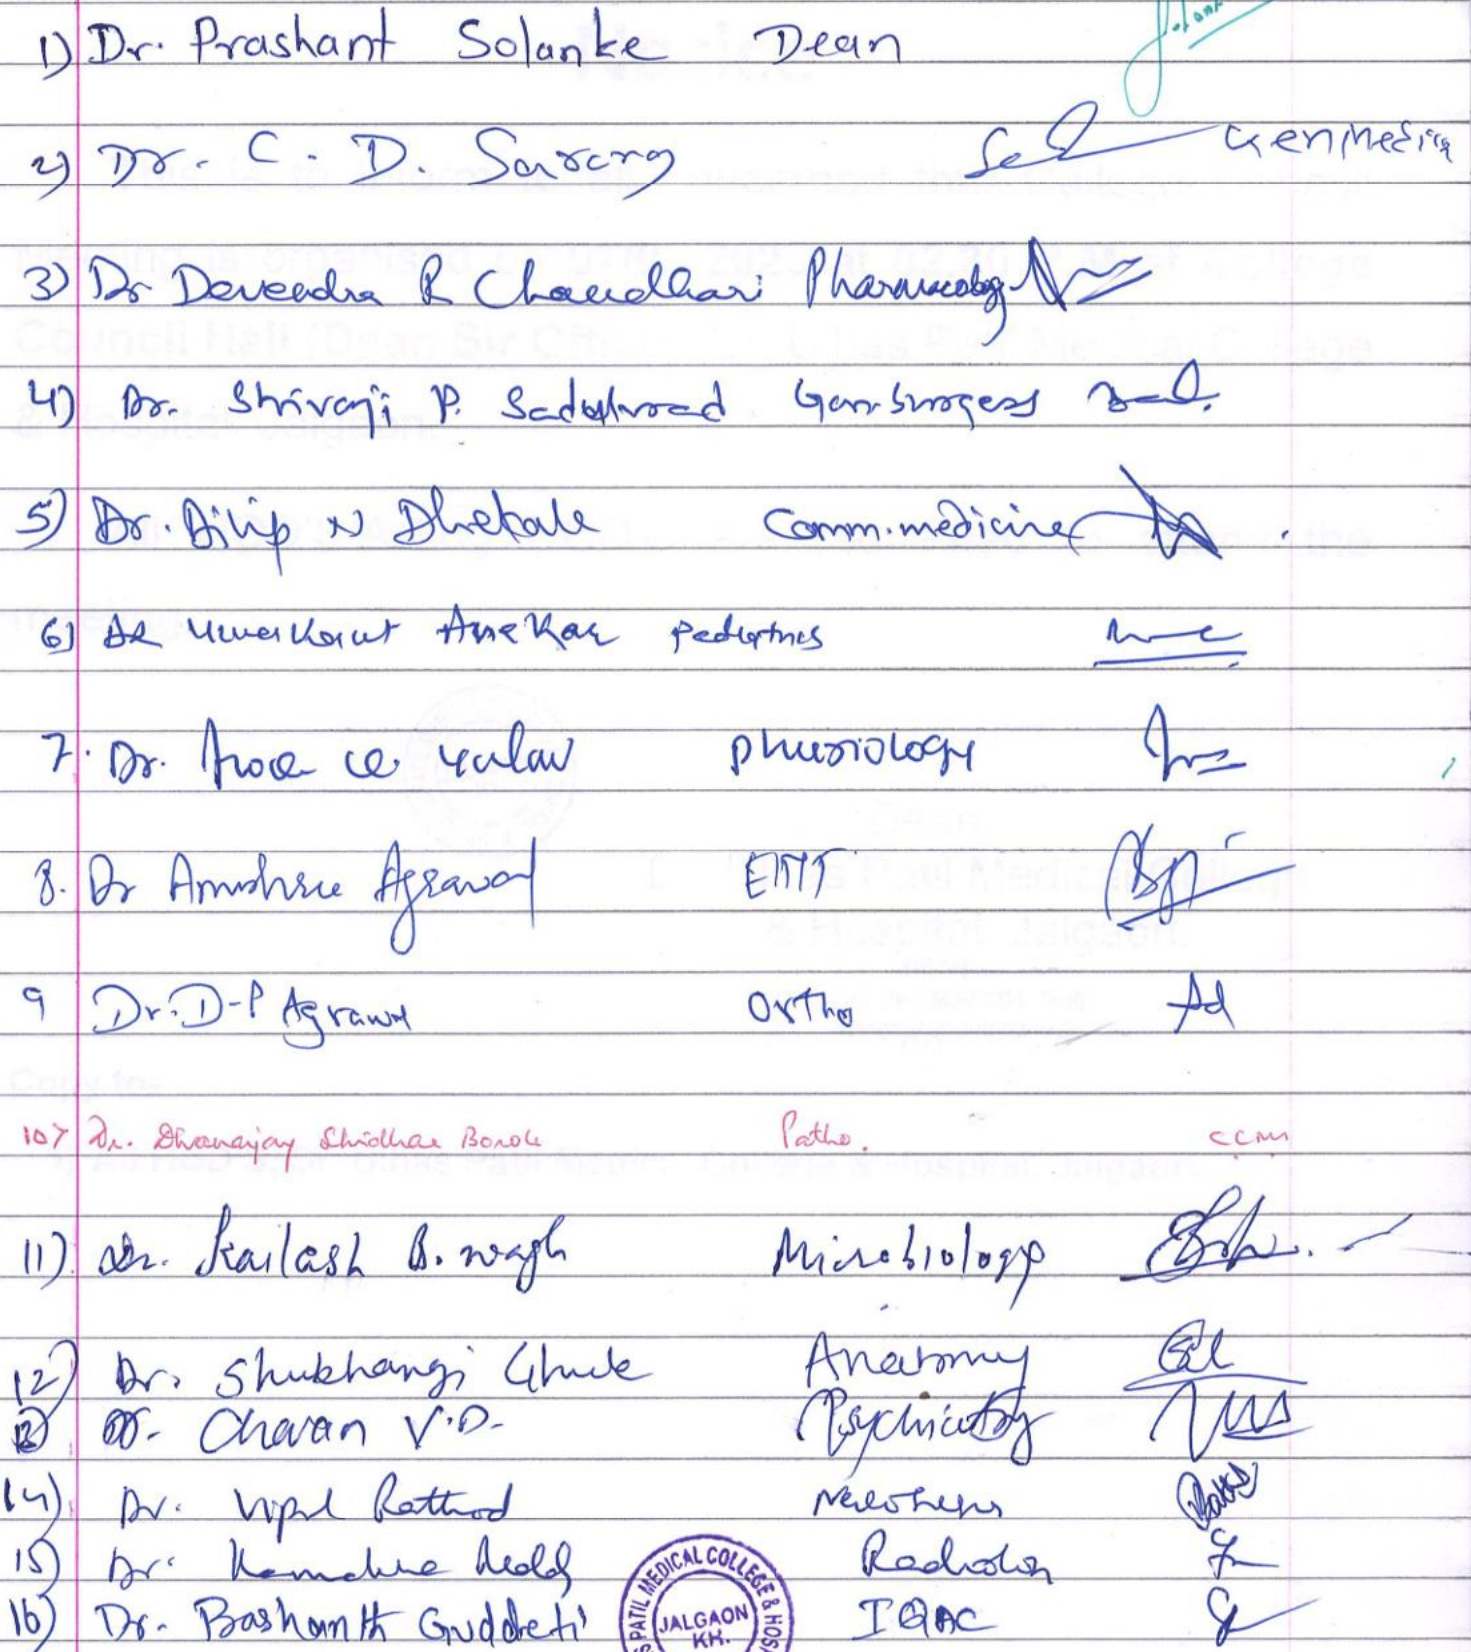 1) Dr. Prashant Solanke Dean
2) Dr. C. D. Sarang Gen Medicin
3) Dr Devendra R Chaudhari Pharmacology
4) Dr. Shrivaji P. Gen. Surgery
5) Dr. Dilip N Dhekale Comm. medicine
6) Dr Umakant Anekar Pediatrics
7. Dr. physiology
8. Dr Anushree Agrawal ENT
9 Dr. D-P Agrawal Ortho
10> Dr. Dhananjay Shridhar Borole Patho. CCM
11) Dr. Kailash B. Wagh Microbiology
12) Dr. Shubhangi Ghule Anatomy
13) Dr. Chavan V.D. Psychiatry
14) Dr. Vipul Rathod
15) Dr. Reddy Radiology
16) Dr. Bashanth Guddeti IQAC
PATIL MEDICAL COLLEGE & HOS
JALGAON
KH.